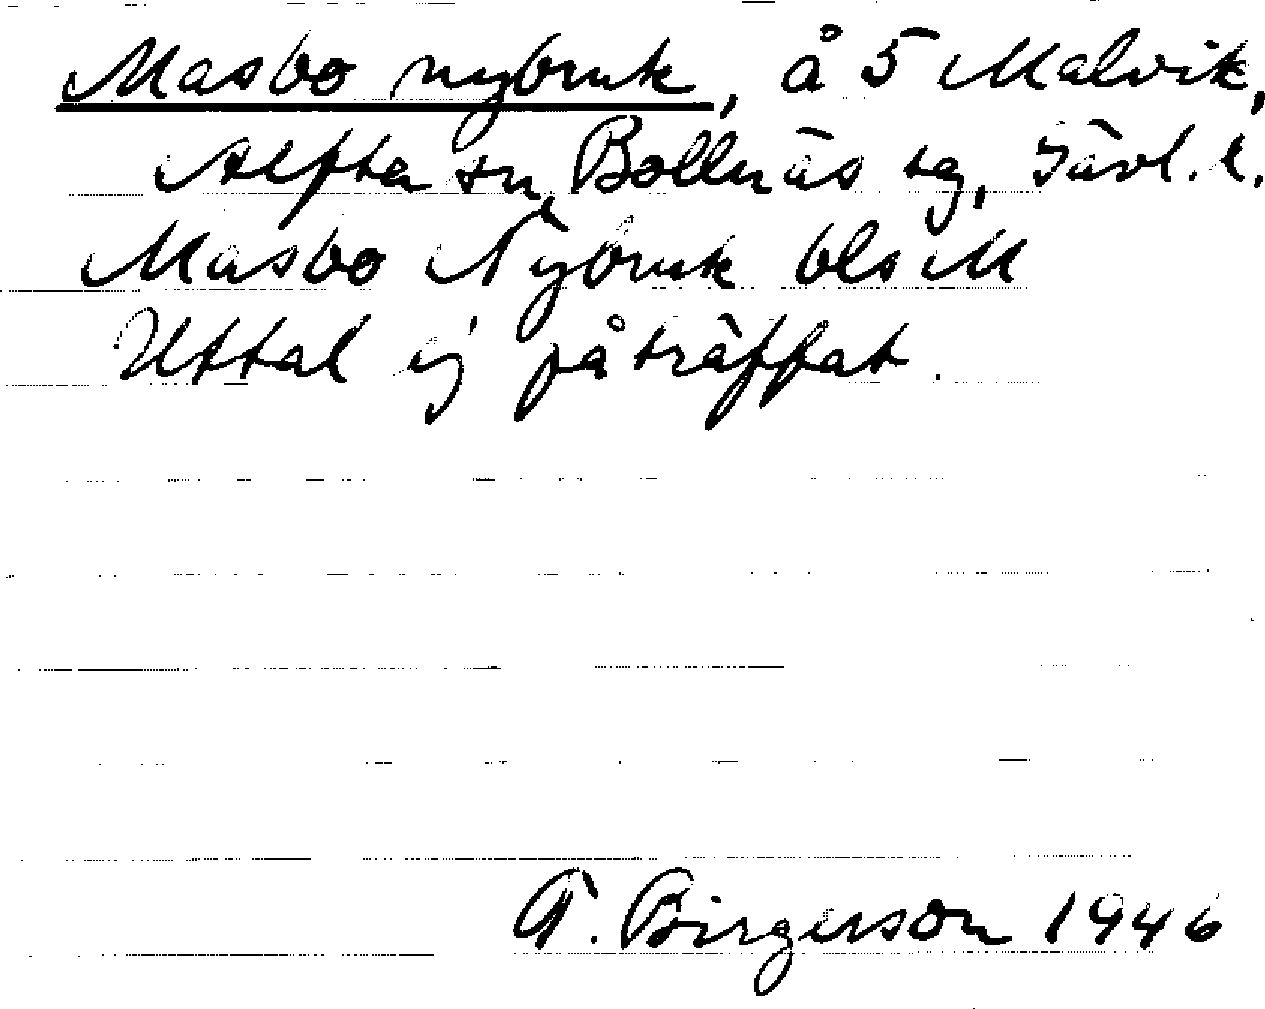 Masbo nybruk, å 5 Malvik,
Alfta sn, Bollnäs tg, Gävl. l.
Masbo Nybruk bls M
Uttal ej påträffat.
T. Birgerson 1946